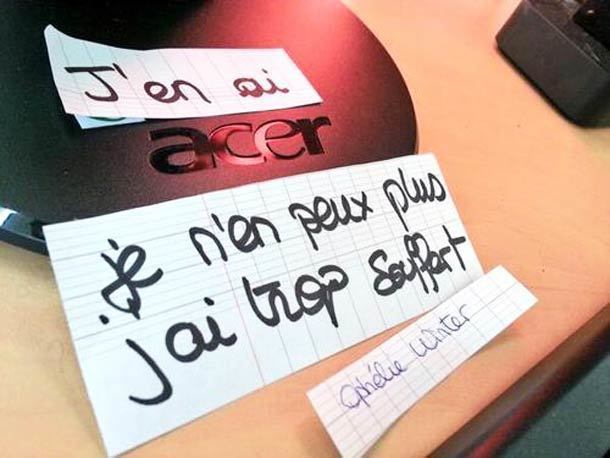 J'en ai
acer
je n'en peux plus
j'ai trop souffert
Ophélie Winter